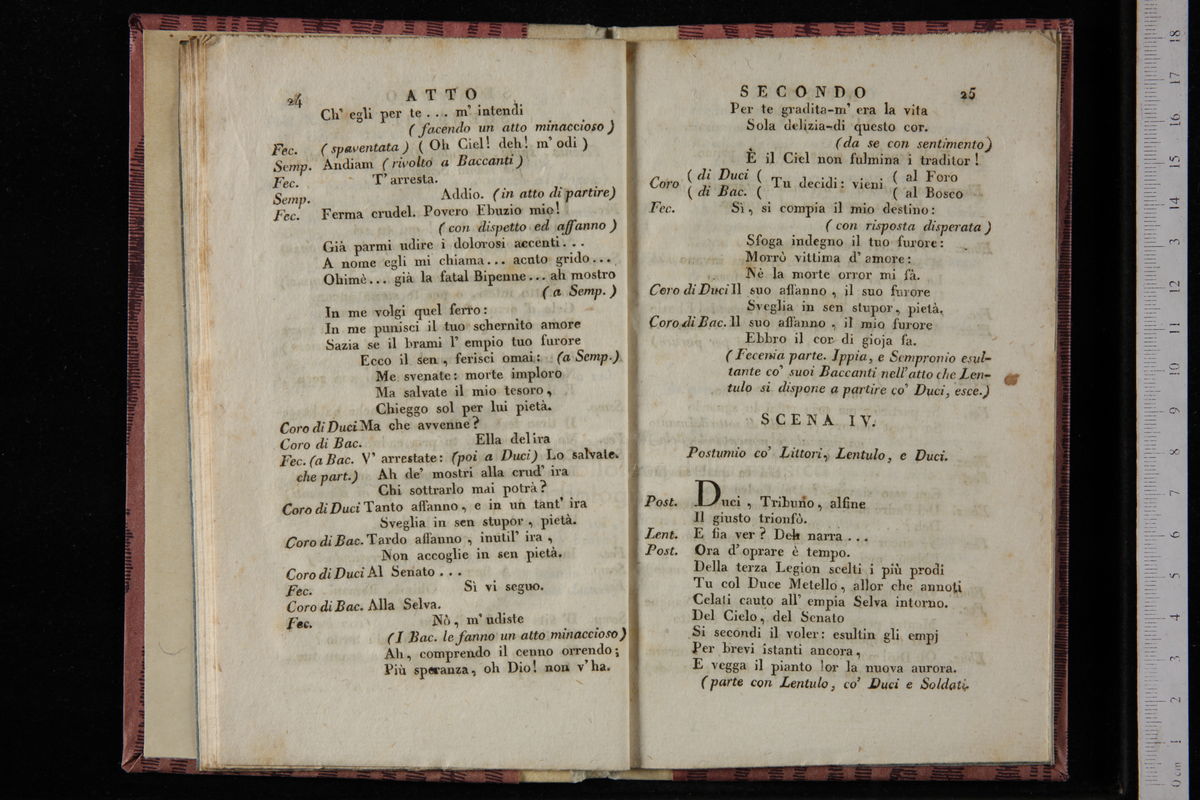 24 ATTO
Ch' egli per te . . . m' intendi
(facendo un atto minaccioso)
Fec. (spaventata) ( Oh Ciel! deh! m' odi )
Semp. Andiam (rivolto a Baccanti)
Fec. T' arresta.
Semp. Addio. (in atto di partire)
Fec. Ferma crudel. Povero Ebuzio mio!
(con dispetto ed affanno)
Già parmi udire i dolorosi accenti. . .
A nome egli mi chiama... acuto grido...
Ohimè... già la fatal Bipenne... ah mostro
(a Semp.)
In me volgi quel ferro:
In me punisci il tuo schernito amore
Sazia se il brami l' empio tuo furore
Ecco il sen, ferisci omai: (a Semp.)
Me svenate: morte imploro
Ma salvate il mio tesoro,
Chieggo sol per lui pietà.
Coro di Duci Ma che avvenne?
Coro di Bac. Ella delira
Fec. (a Bac. V' arrestate: (poi a Duci) Lo salvate.
che part.) Ah de' mostri alla crud' ira
Chi sottrarlo mai potrà?
Coro di Duci Tanto affanno, e in un tant' ira
Sveglia in sen stupor, pietà.
Coro di Bac. Tardo affanno, inutil' ira,
Non accoglie in sen pietà.
Coro di Duci Al Senato . . .
Fec. Sì vi seguo.
Coro di Bac. Alla Selva.
Fec. Nò, m' udiste
(I Bac. le fanno un atto minaccioso)
Ah, comprendo il cenno orrendo;
Più speranza, oh Dio! non v' ha.
SECONDO 25
Per te gradita-m' era la vita
Sola delizia-di questo cor.
(da se con sentimento)
E il Ciel non fulmina i traditor!
Coro ( di Duci ( Tu decidi: vieni ( al Foro
( di Bac. ( ( al Bosco
Fec. Sì, si compia il mio destino:
(con risposta disperata)
Sfoga indegno il tuo furore:
Morrò vittima d' amore:
Nè la morte orror mi fà.
Coro di Duci Il suo affanno, il suo furore
Sveglia in sen stupor, pietà.
Coro di Bac. Il suo affanno, il mio furore
Ebbro il cor di gioja fa.
(Fecenia parte. Ippia, e Sempronio esul-
tante co' suoi Baccanti nell' atto che Len-
tulo si dispone a partire co' Duci, esce.)
SCENA IV.
Postumio co' Littori, Lentulo, e Duci.
Post. Duci, Tribuno, alfine
Il giusto trionfò.
Lent. E fia ver? Deh narra . . .
Post. Ora d' oprare è tempo.
Della terza Legion scelti i più prodi
Tu col Duce Metello, allor che annoti
Celati cauto all' empia Selva intorno.
Del Cielo, del Senato
Si secondi il voler: esultin gli empj
Per brevi istanti ancora,
E vegga il pianto lor la nuova aurora.
(parte con Lentulo, co' Duci e Soldati.
0 cm 1 2 3 4 5 6 7 8 9 10 11 12 13 14 15 16 17 18